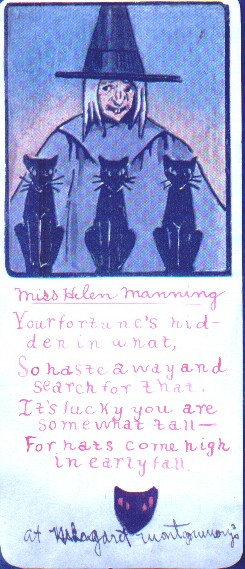 Miss Helen Manning
Your fortune's hid-
den in a hat,
So haste away and
search for that.
It's lucky you are
somewhat tall—
For hats come high
in early fall.
at Margaret Montgomery's